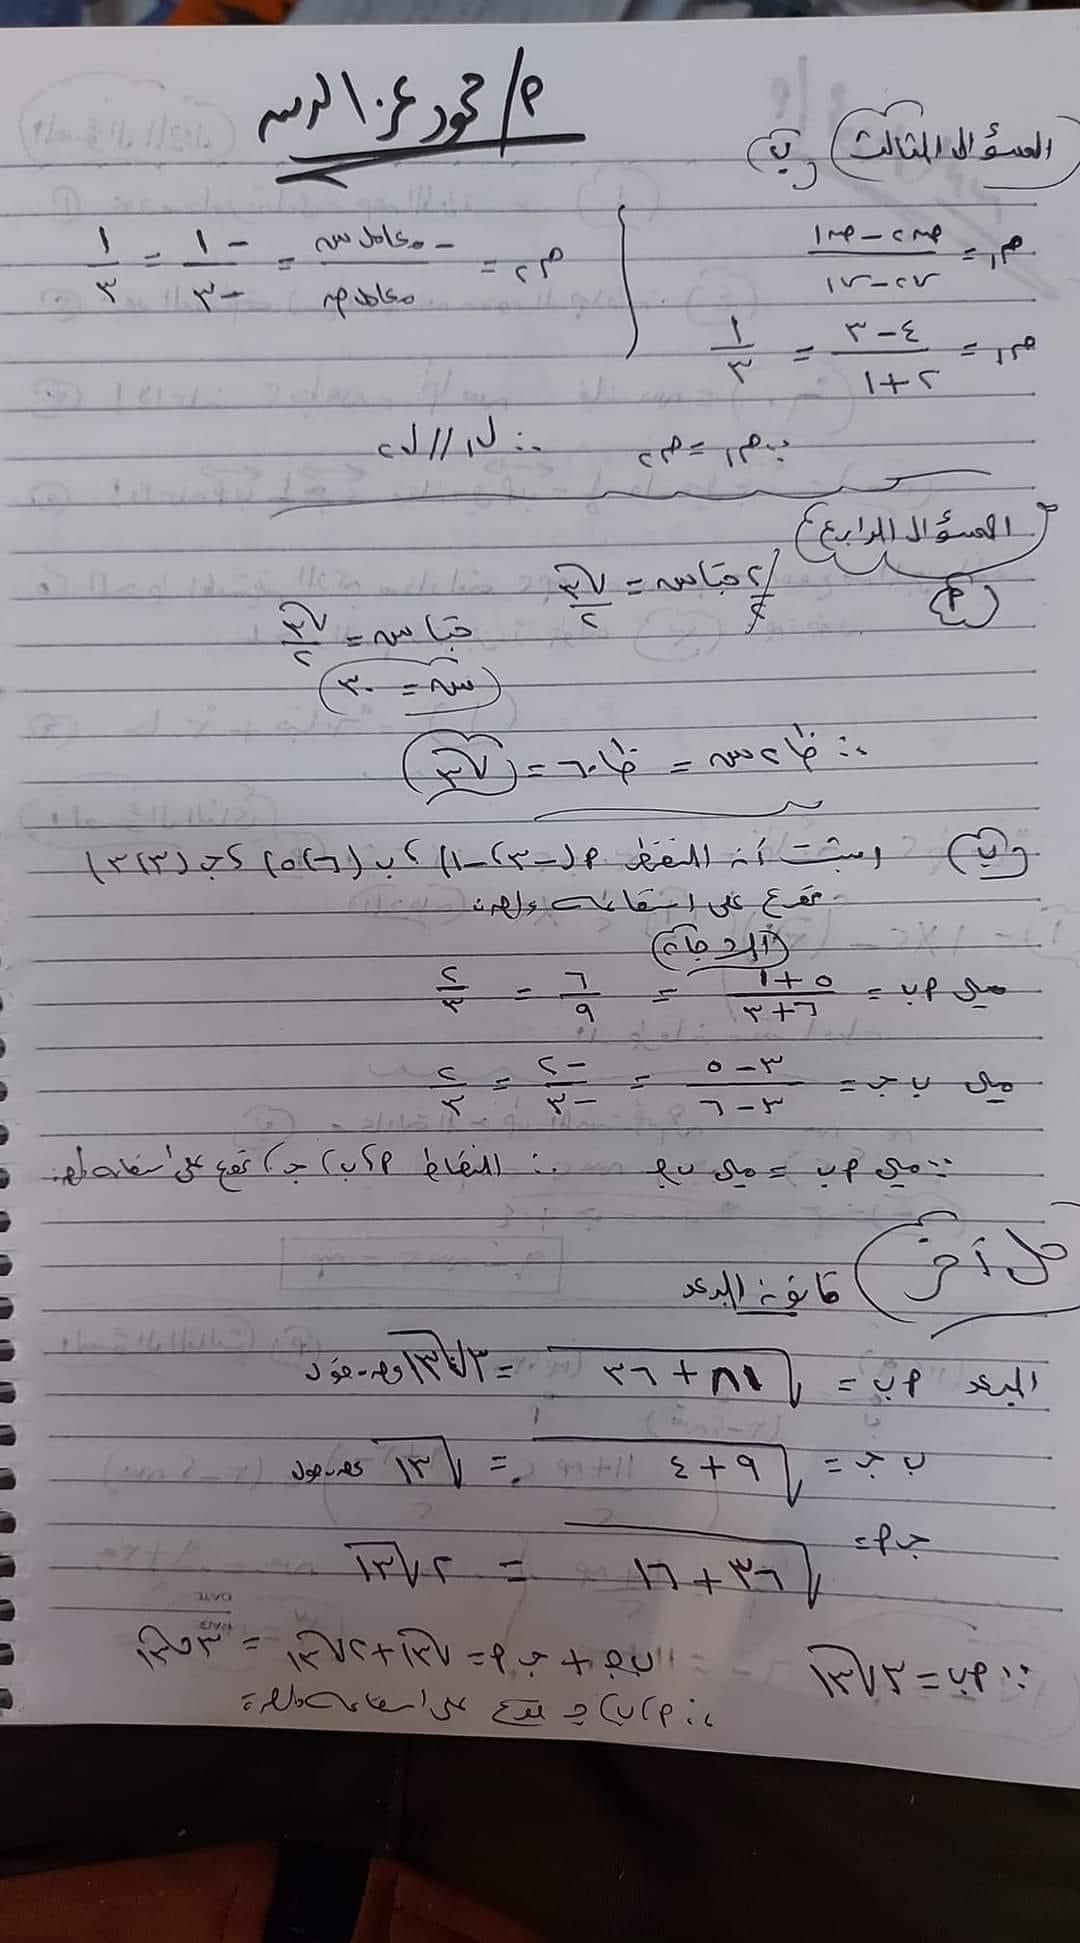 م/ محمود عز الدين
السؤال الثالث (ب)
م١ = (ص٢ - ص١)/(س٢ - س١)
م٢ = -معامل س/معامل ص = -١/-٣ = ١/٣
م١ = (٤-٣)/(٢+١) = ١/٣
∵ م١ = م٢ ∴ ل١ // ل٢
السؤال الرابع
(أ) ٢ جتا س = √٣/٢
جتا س = √٣/٢
س = ٣٠
∴ ظا ٢س = ظا ٦٠ = √٣
(ب) اثبت أن النقط أ(-٣، -١) ، ب(٦، ٥) ، جـ(٣، ٣)
تقع على استقامة واحدة
الاجابة
ميل أب = (٥+١)/(٦+٣) = ٦/٩ = ٢/٣
ميل ب جـ = (٣-٥)/(٣-٦) = -٢/-٣ = ٢/٣
∵ ميل أب = ميل ب جـ ∴ النقاط أ، ب، جـ تقع على استقامة واحدة
حل آخر
قانون البعد
البعد أب = √(٨١ + ٣٦) = ٣√١٣ وحدة طول
ب جـ = √(٩+٤) = √١٣ وحدة طول
جـ أ = √(٣٦ + ١٦) = ٢√١٣
∴ أب = ٣√١٣ ، ب جـ + جـ أ = √١٣ + ٢√١٣ = ٣√١٣
∴ أ، ب، جـ تقع على استقامة واحدة